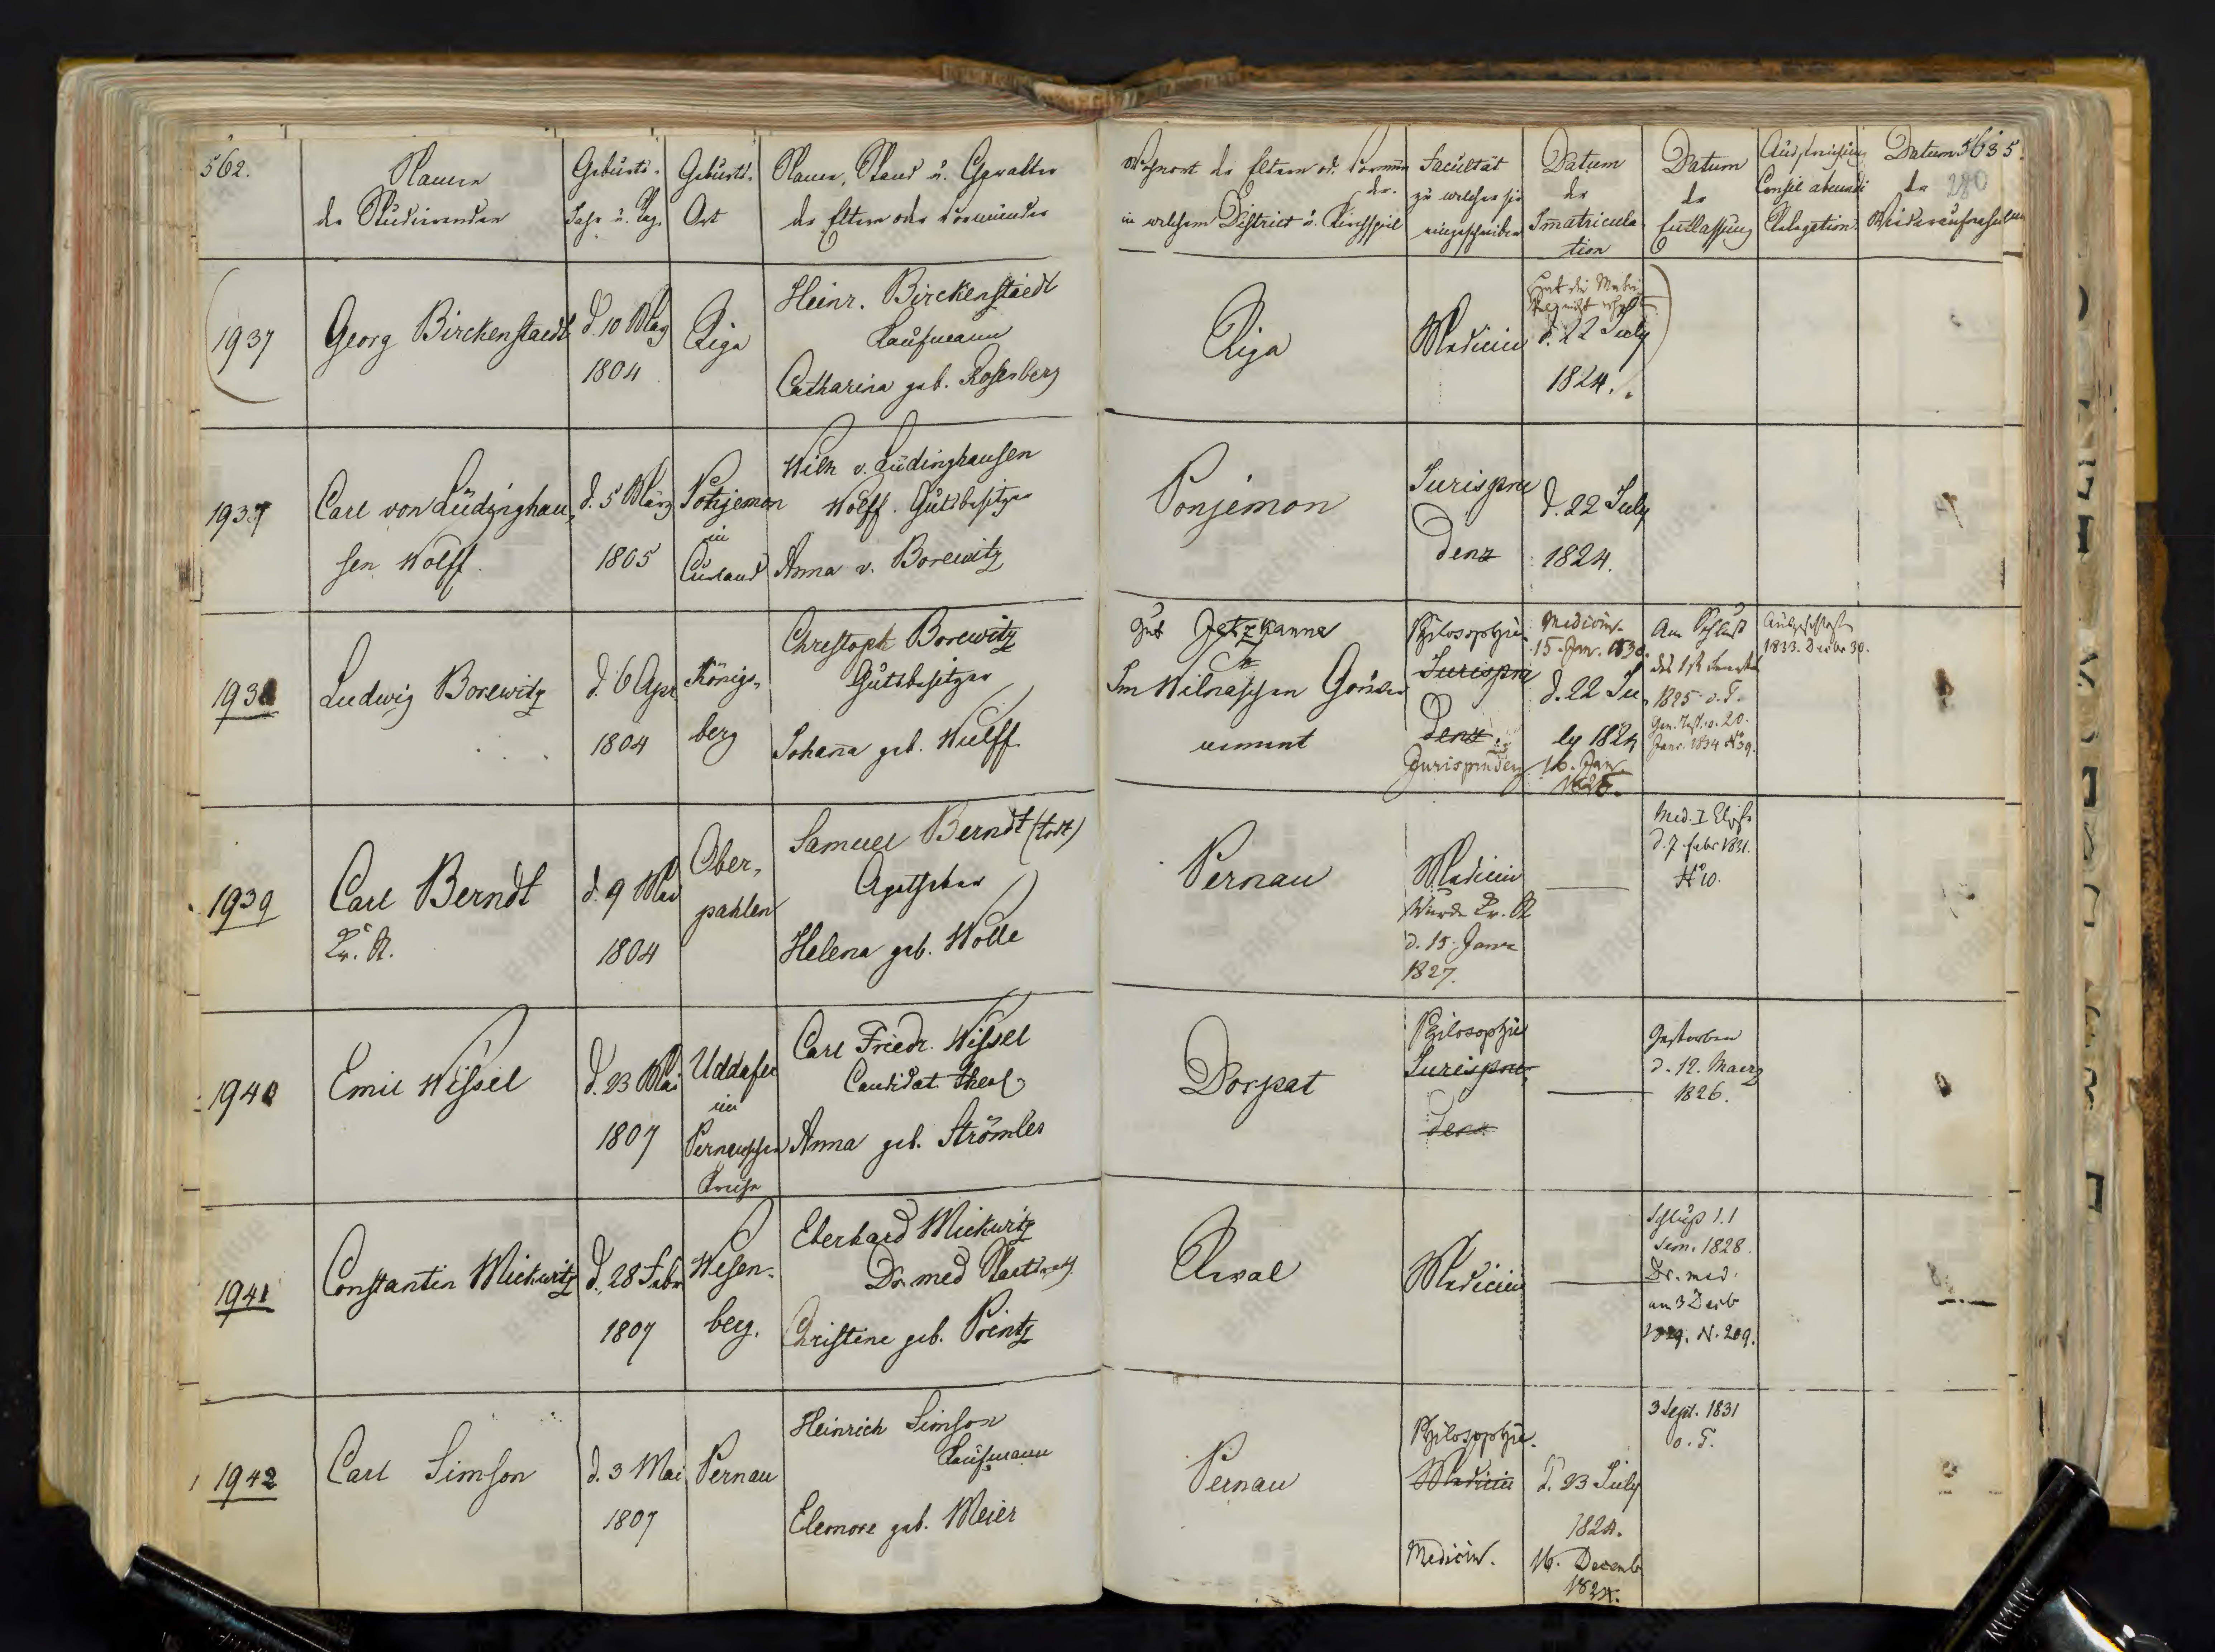 562.
Namen
der Studirenden
Geburts-
Jahr u. Tag.
Geburts-
Ort
Name, Stand u. Gewalter
der Eltern oder Vormünder
Wohnort der Eltern od. Vormün
der.
in welchem District u. Kirchspiel
Facultät
zu welcher sie
eingeschrieben
Datum
der
Immatricula-
tion
Datum
der
Entlassung
Consil abeundi
Relegation
Datum
der
Wiederaufnahme
563
280
1937
Georg Birckenstaedt
d. 10 May
1804
Riga
Heinr. Birckenstaedt
Kaufmann
Catharina geb. Rosenberg
Riga
Medicin
Hat die Matri-
kel nicht
d. 22 July
1824.
1937
Carl von Lüdinghau-
sen Wolff.
d. 5 März
1805
Ponjemon
in
Curland
Wilh v. Lüdinghausen
Wolff. Gutsbesitzer
Anna v. Borewitz
Ponjemon
Jurispru
denz
d. 22 July
1824.
1938
Ludwig Borewitz
d. 6 Apr
1804
Königs-
berg
Christoph Borewitz
Gutsbesitzer
Johana geb. Wulff.
Gut Jetzkanne
Im Wilnaschen Gouver
nement
Philosophie
Jurispru
denz
Jurisprudenz
Medicin
15. Jan. 1830.
d. 22 Ju-
ly 1824
16. Jan.
Am Schluß
des 1st Semest
1825 o. T.
20.
Janr. 1834 No 39.
Ausgeschloss
1833. Decbr 30.
1939
Carl Berndt
d. 9 Mai
1804
Ober-
pahlen
Samuel Berndt (todt)
Apotheker
Helena geb. Wolle
Pernau
Medicin
Wurde
d. 15. Janr
1827.
Med. I Classe
d. 7. Febr 1831.
No 10.
1940
Emil Wissel
d. 23 Mai
1807
Uddafer
im
Pernauschen
Kreise
Carl Friedr. Wissel
Candidat theol
Anna geb. Strömler
Dorpat
Philosophie
Jurispru-
denz
Gestorben
d. 12. Maerz
1826.
1941
Constantin Mickwitz
d. 28 Febr
1807
Wesen-
berg.
Eberhard Mickwitz
Dr. med
Christine geb. Printz
Reval
Medicin
Schluß d. I
Sem. 1828.
Dr. med.
am 3 Decb
1829. N. 209.
1942
Carl Simson
d. 3 Mai
1807
Pernau
Heinrich Simson
Kaufmann
Eleonore geb. Meier
Pernau
Philosophie.
Medicin
Medicin.
d. 23 July
1824.
16. Decemb
1824.
3 Sept. 1831
o. T.